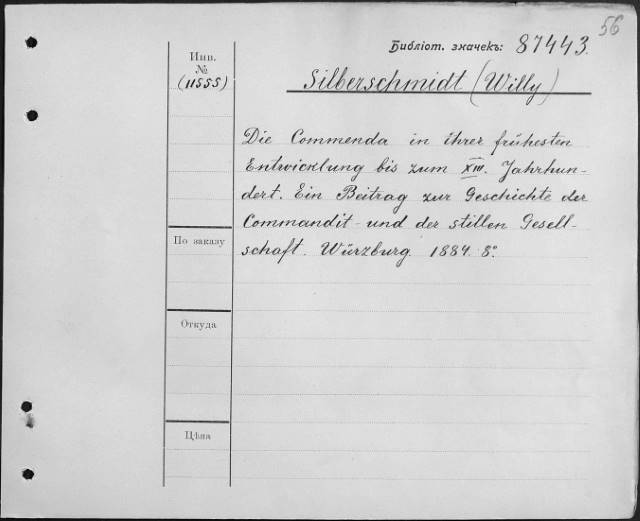 56
Библіот. значекъ: 87443.
Инв.
№
(11555)
Silberschmidt (Willy)
Die Commenda in ihrer frühesten
Entwicklung bis zum XIII. Jahrhun-
dert. Ein Beitrag zur Geschichte der
Commandit- und der stillen Gesell-
schaft. Würzburg. 1884. 8°.
По заказу
Откуда
Цѣна